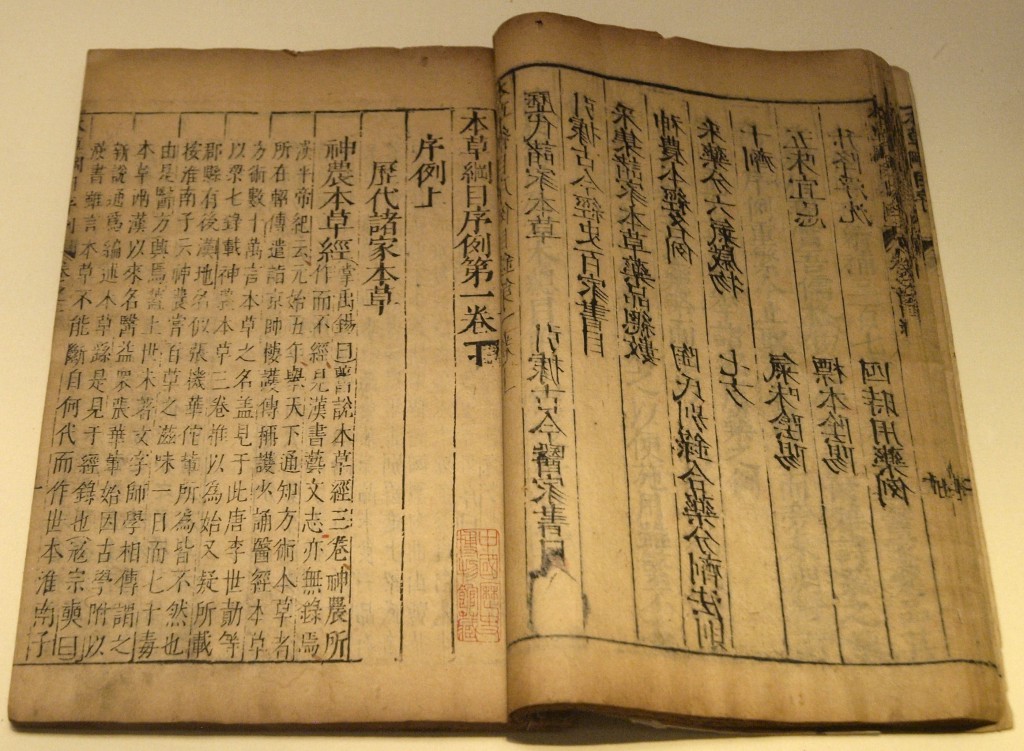 升降浮沉 四時用藥例
五味宜忌 標本陰陽
十劑 氣味陰陽
采藥分六氣歲物 七方
神農本經名例 陶氏別錄合藥分劑法則
采集諸家本草藥品總數
引據古今經史百家書目
歷代諸家本草 引據古今醫家書目
本草綱目序例第一卷下
序例上
歷代諸家本草
神農本草經 掌禹錫曰舊說本草經三卷神農所
作而不經見漢書藝文志亦無錄焉
漢平帝紀云元始五年舉天下通知方術本草者
所在軺傳遣詣京師樓護傳稱護少誦醫經本草
方術數十萬言本草之名蓋見于此唐李世勣等
以梁七錄載神農本草三卷推以為始又疑所載
郡縣有後漢地名似張機華佗輩所為皆不然也
按淮南子云神農嘗百草之滋味一日而七十毒
由是醫方興焉蓋上世未著文字師學相傳謂之
本草兩漢以來名醫益衆張華輩始因古學附以
新說通爲編述本草繇是見于經錄也寇宗奭曰
漢書雖言本草不能斷自何代而作世本淮南子
中國歷史
博物館藏